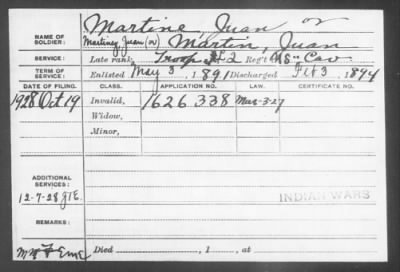 Martine, Juan or
NAME OF SOLDIER: Martinez, Juan (or) Martin, Juan
SERVICE: Late rank, Troop 2 Reg't US Cav
TERM OF SERVICE: Enlisted May 3, 1891 Discharged Feb 3, 1894
DATE OF FILING. CLASS. APPLICATION NO. LAW. CERTIFICATE NO.
1928 Oct 19 Invalid, 1626 338 Mar-3-27
Widow,
Minor,
ADDITIONAL SERVICES:
12-7-28 INDIAN WARS
REMARKS:
Died , 1 , at